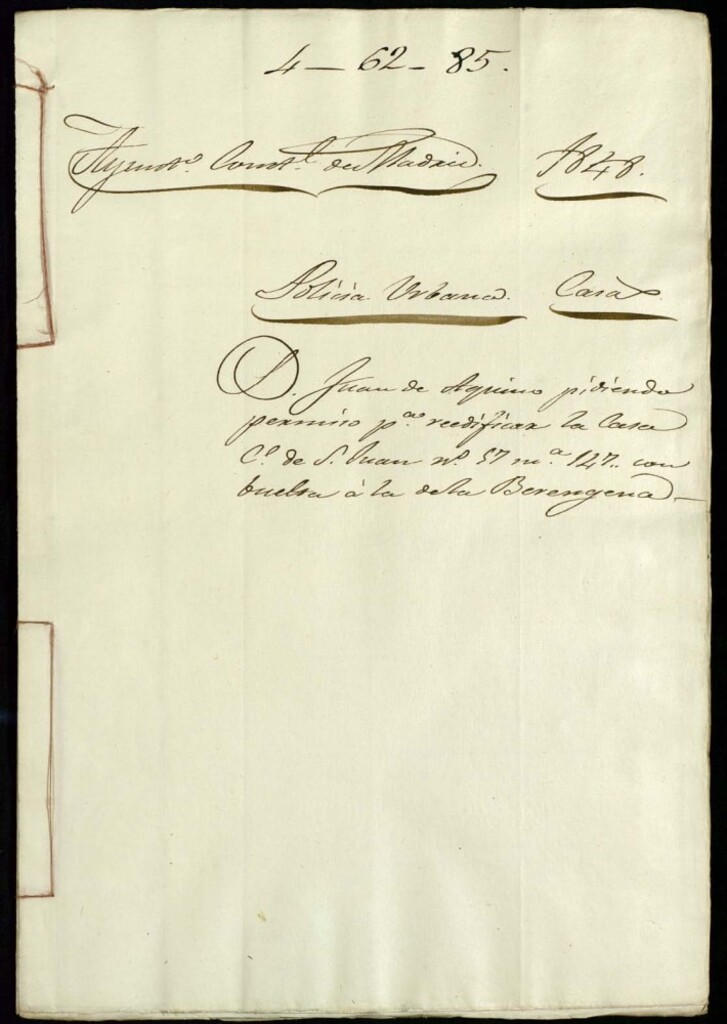 4 - 62 - 85.
Ayuntº. Constl. de Madrid. 1848.
Policia Urbana. Casas
D. Juan de Aquino pidiendo
permiso pª. reedificar la Casa
Cº. de S. Juan nº. 57 mª. 147.. con
buelta à la dela Berengena